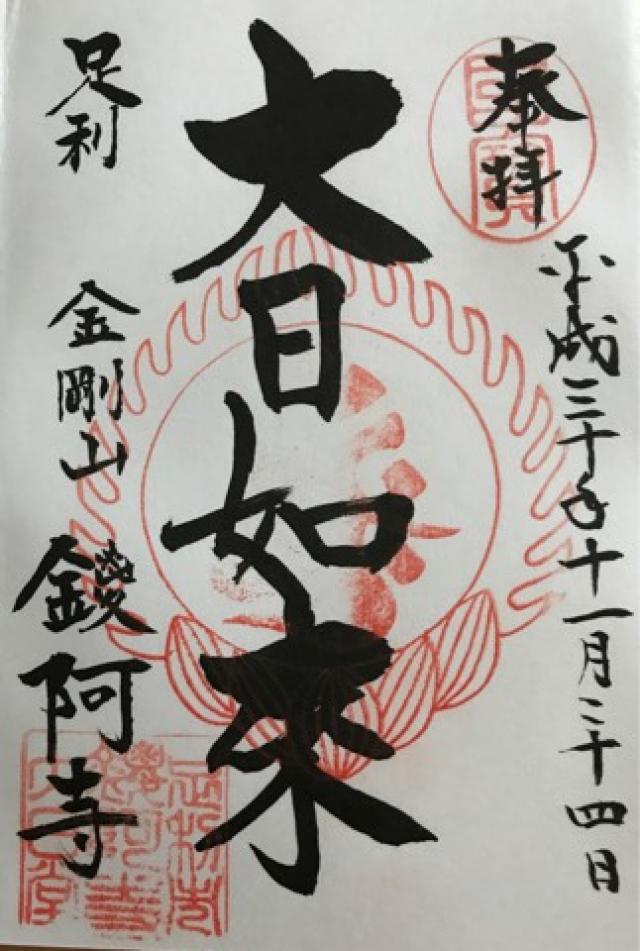 奉拝
國寶
平成三十年十一月二十四日
大日如來
足利
金剛山
鑁阿寺